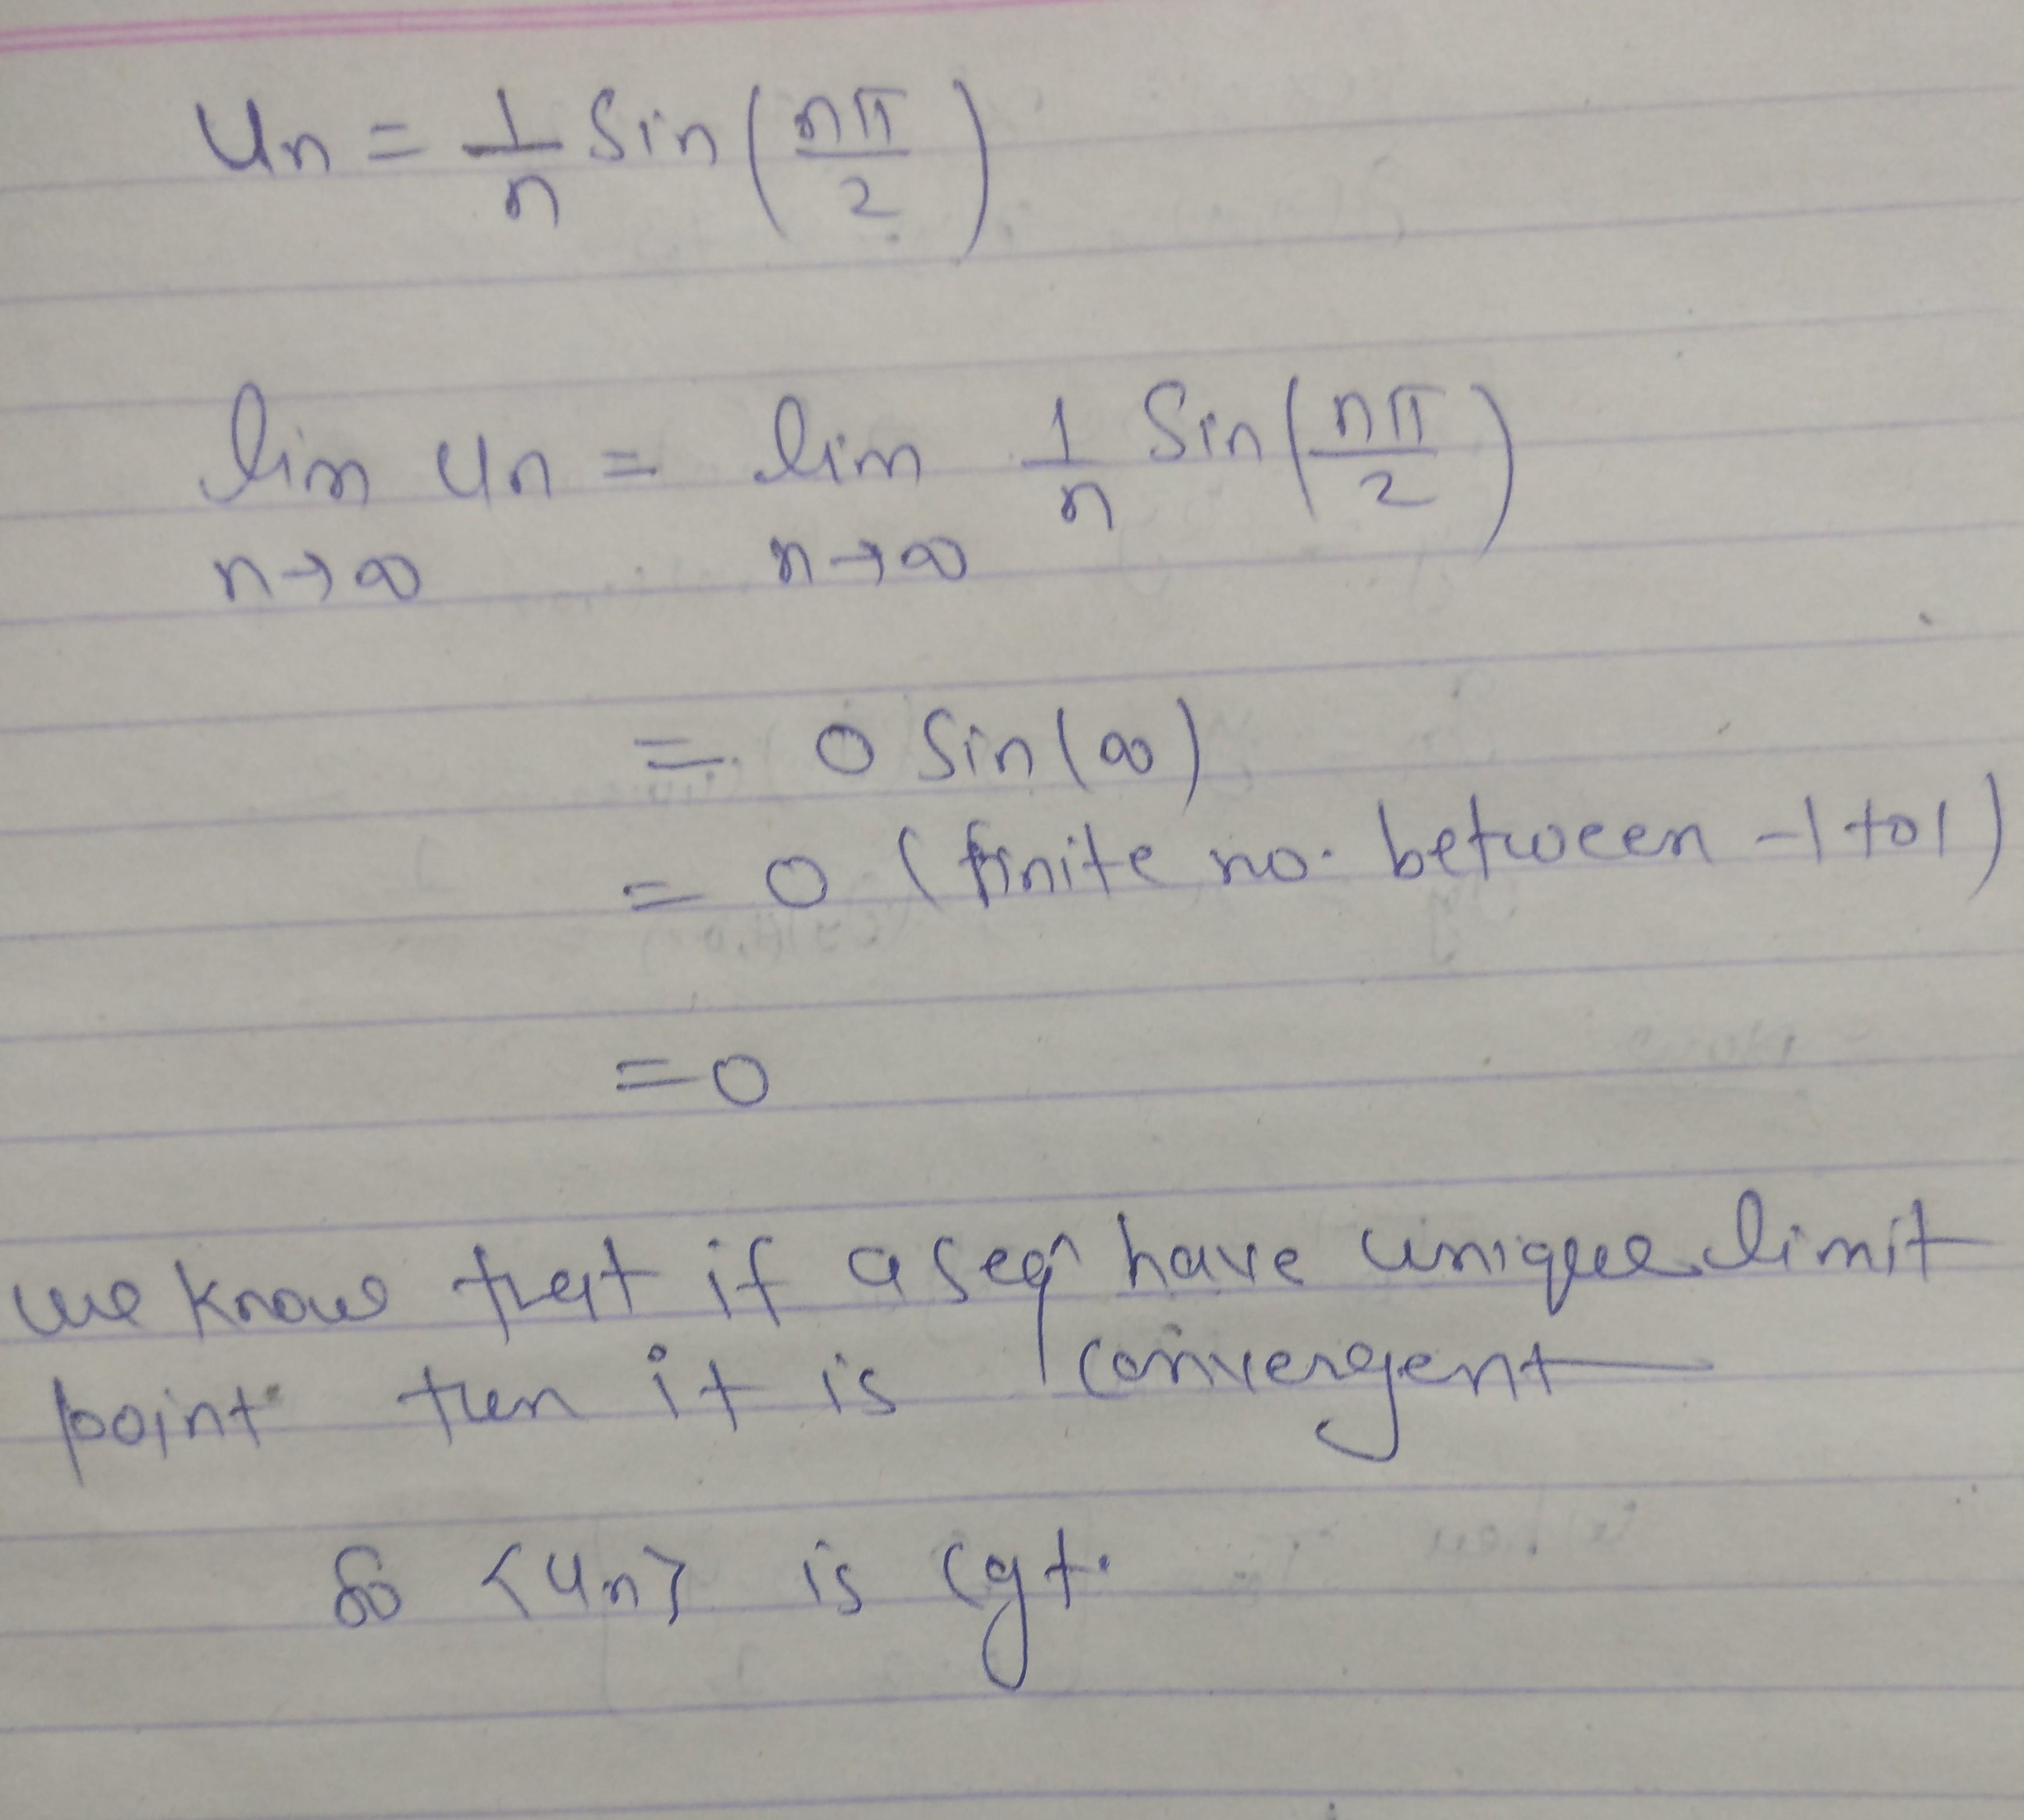 Un = 1/n Sin(nπ/2)
lim n→∞ Un = lim n→∞ 1/n Sin(nπ/2)
= 0 Sin(∞)
= 0 (finite no. between -1 to 1)
= 0
we know that if a seqn have unique limit
point then it is convergent
So <Un> is cgt.